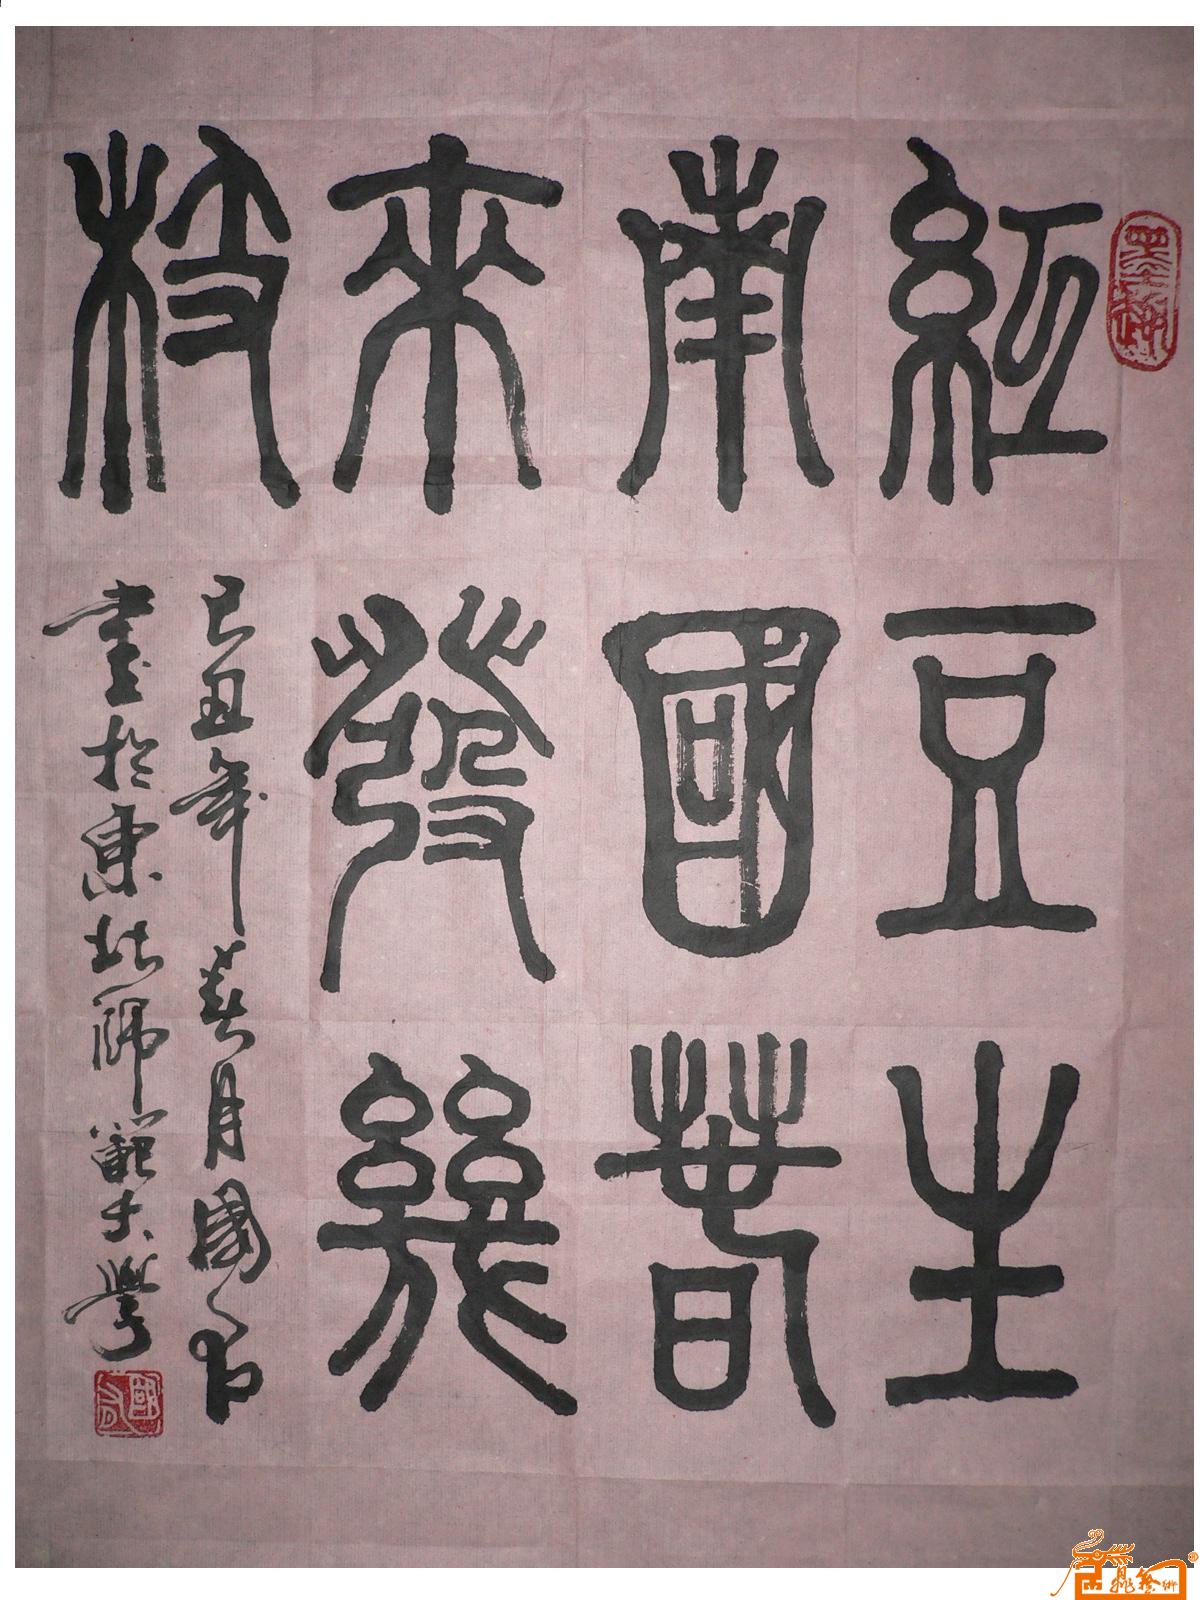 紅豆生
南國春
來發幾
枝
己丑年春月國有
書於東北師範大學